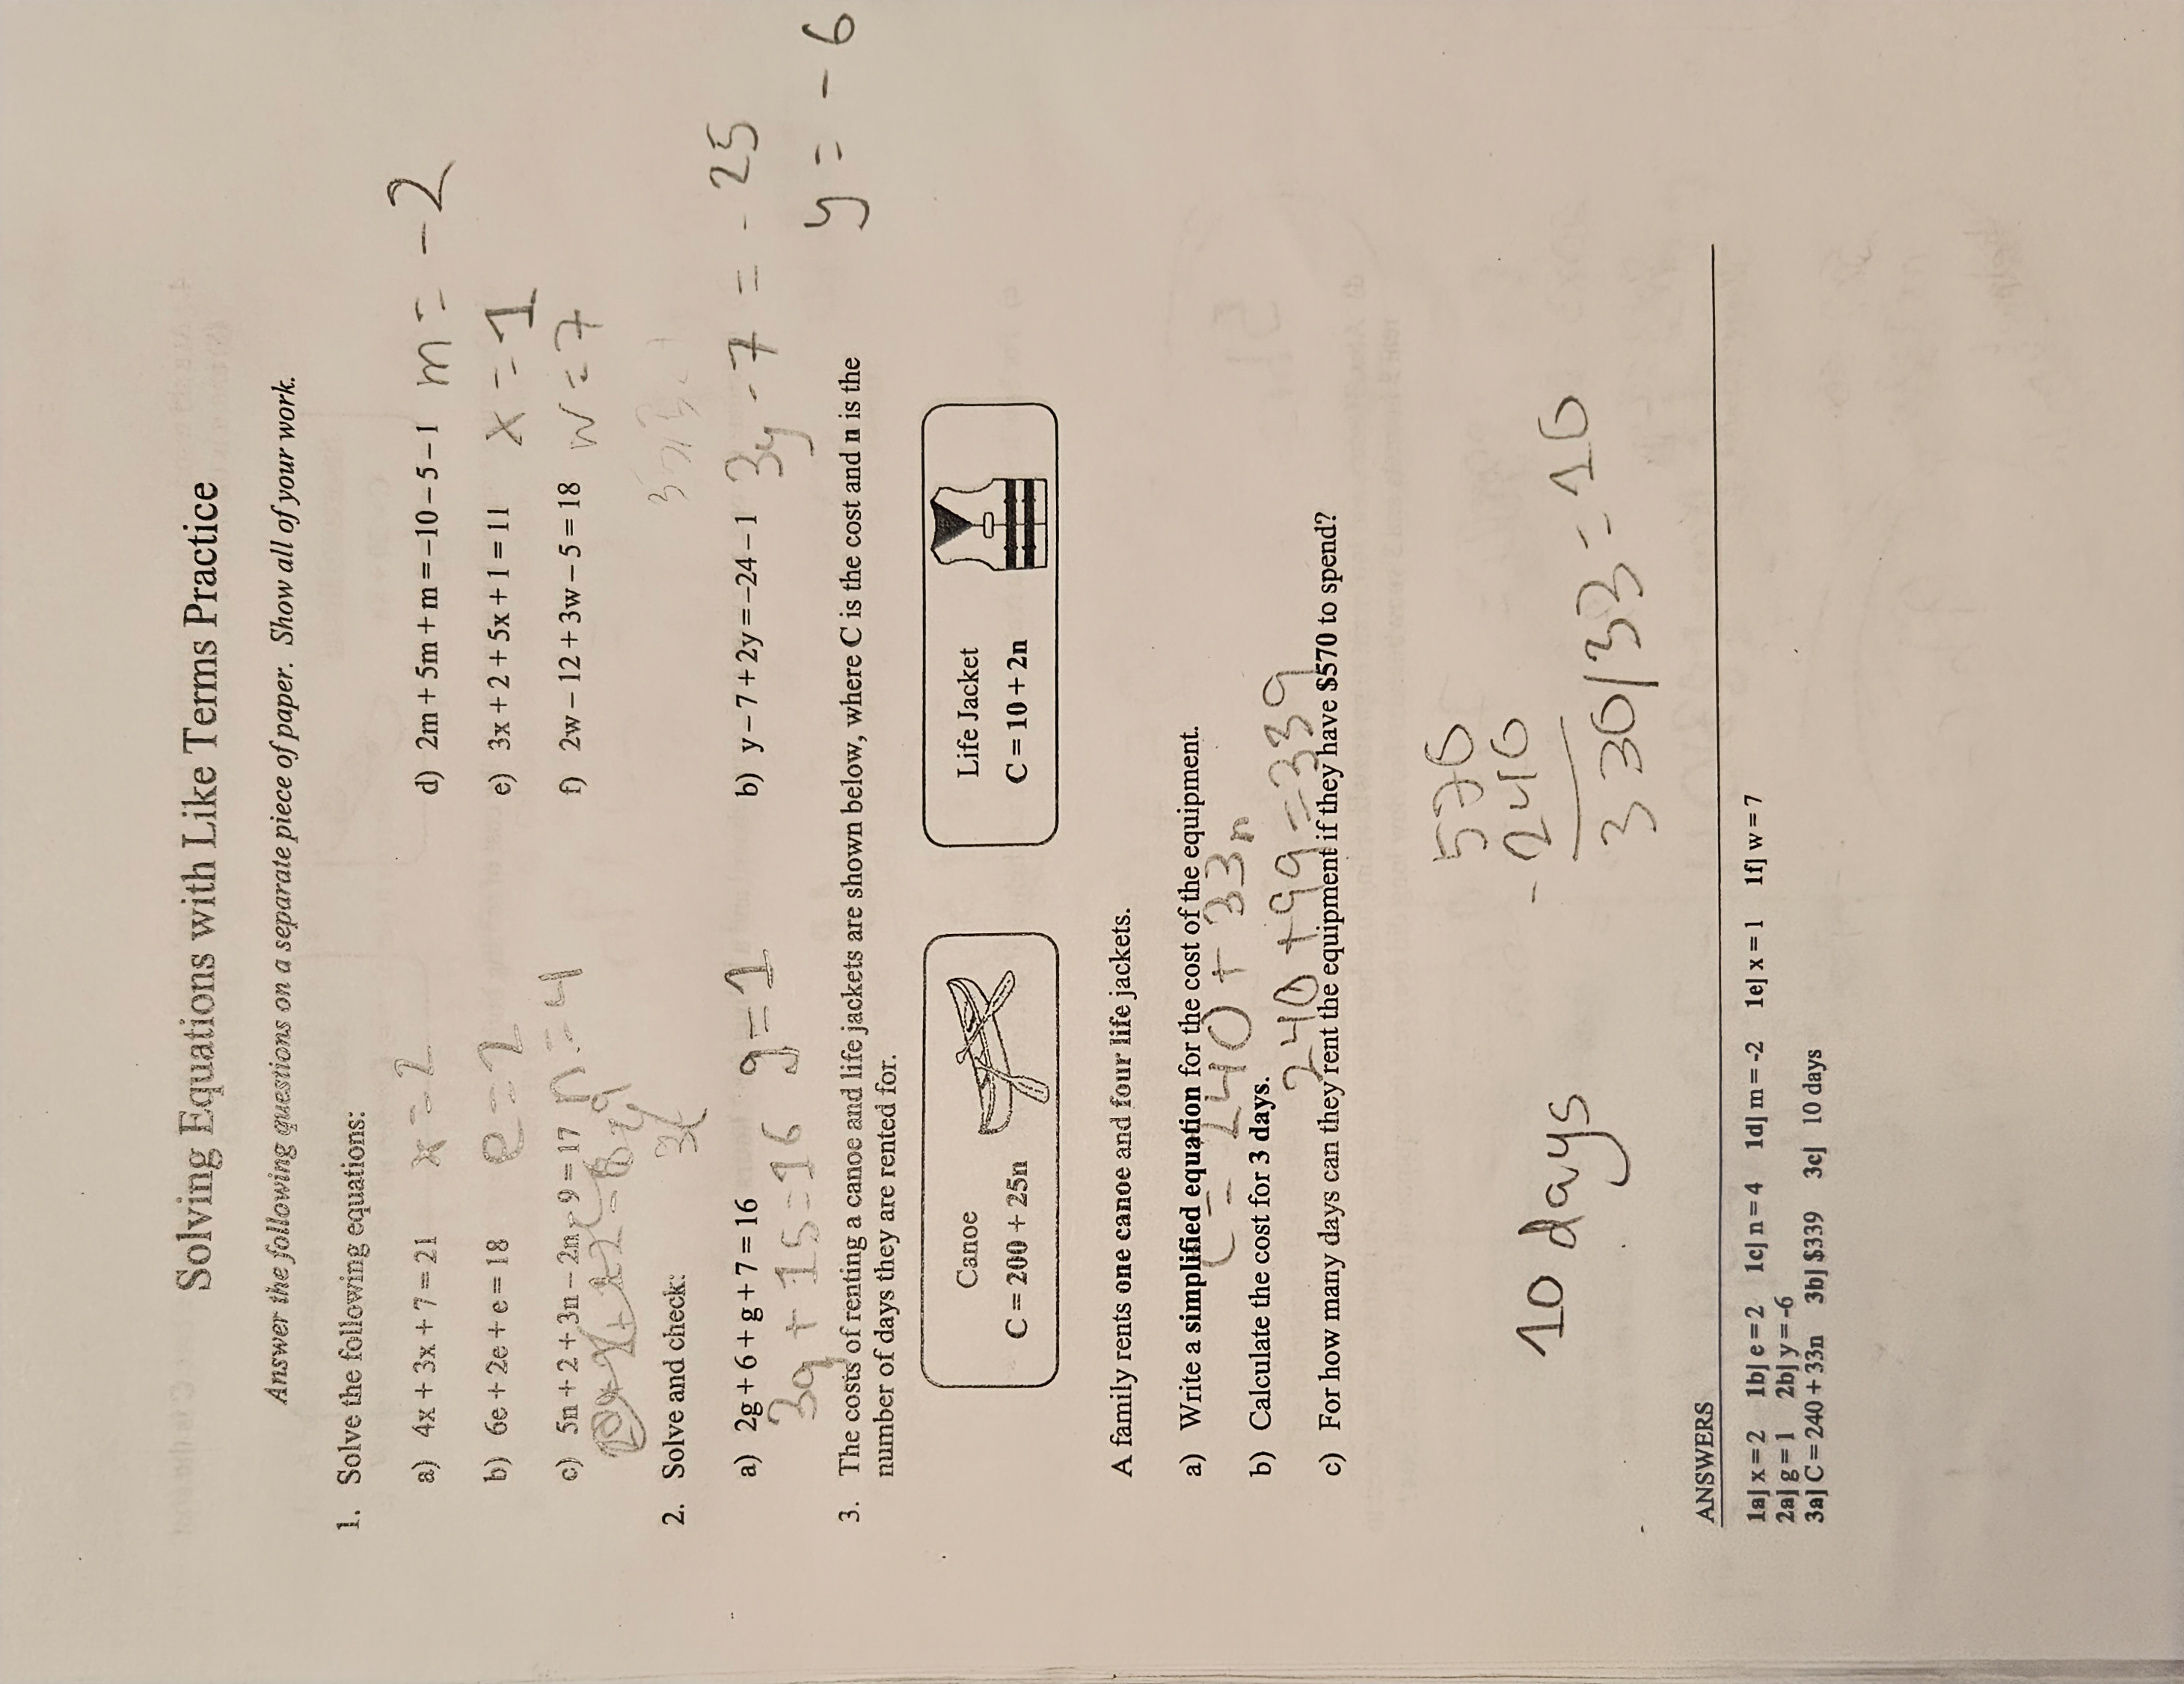 Solving Equations with Like Terms Practice
Answer the following questions on a separate piece of paper. Show all of your work.
1. Solve the following equations:
a) 4x + 3x + 7 = 21 x = 2
d) 2m + 5m + m = –10 – 5 – 1 m = -2
b) 6e + 2e + e = 18 e = 2
e) 3x + 2 + 5x + 1 = 11 x = 1
c) 5n + 2 + 3n – 2n – 9 = 17 n = 4
f) 2w – 12 + 3w – 5 = 18 w = 7
2. Solve and check:
a) 2g + 6 + g + 7 = 16 g = 1
3g + 15 = 16
b) y – 7 + 2y = –24 – 1 3y - 7 = - 25
y = - 6
3. The costs of renting a canoe and life jackets are shown below, where C is the cost and n is the
number of days they are rented for.
Canoe
C = 200 + 25n
Life Jacket
C = 10 + 2n
A family rents one canoe and four life jackets.
a) Write a simplified equation for the cost of the equipment.
C = 240 + 33n
b) Calculate the cost for 3 days.
240 + 99 = 339
c) For how many days can they rent the equipment if they have $570 to spend?
570
- 240
330/33 = 10
10 days
ANSWERS
1a] x = 2 1b] e = 2 1c] n = 4 1d] m = -2 1e] x = 1 1f] w = 7
2a] g = 1 2b] y = -6
3a] C = 240 + 33n 3b] $339 3c] 10 days